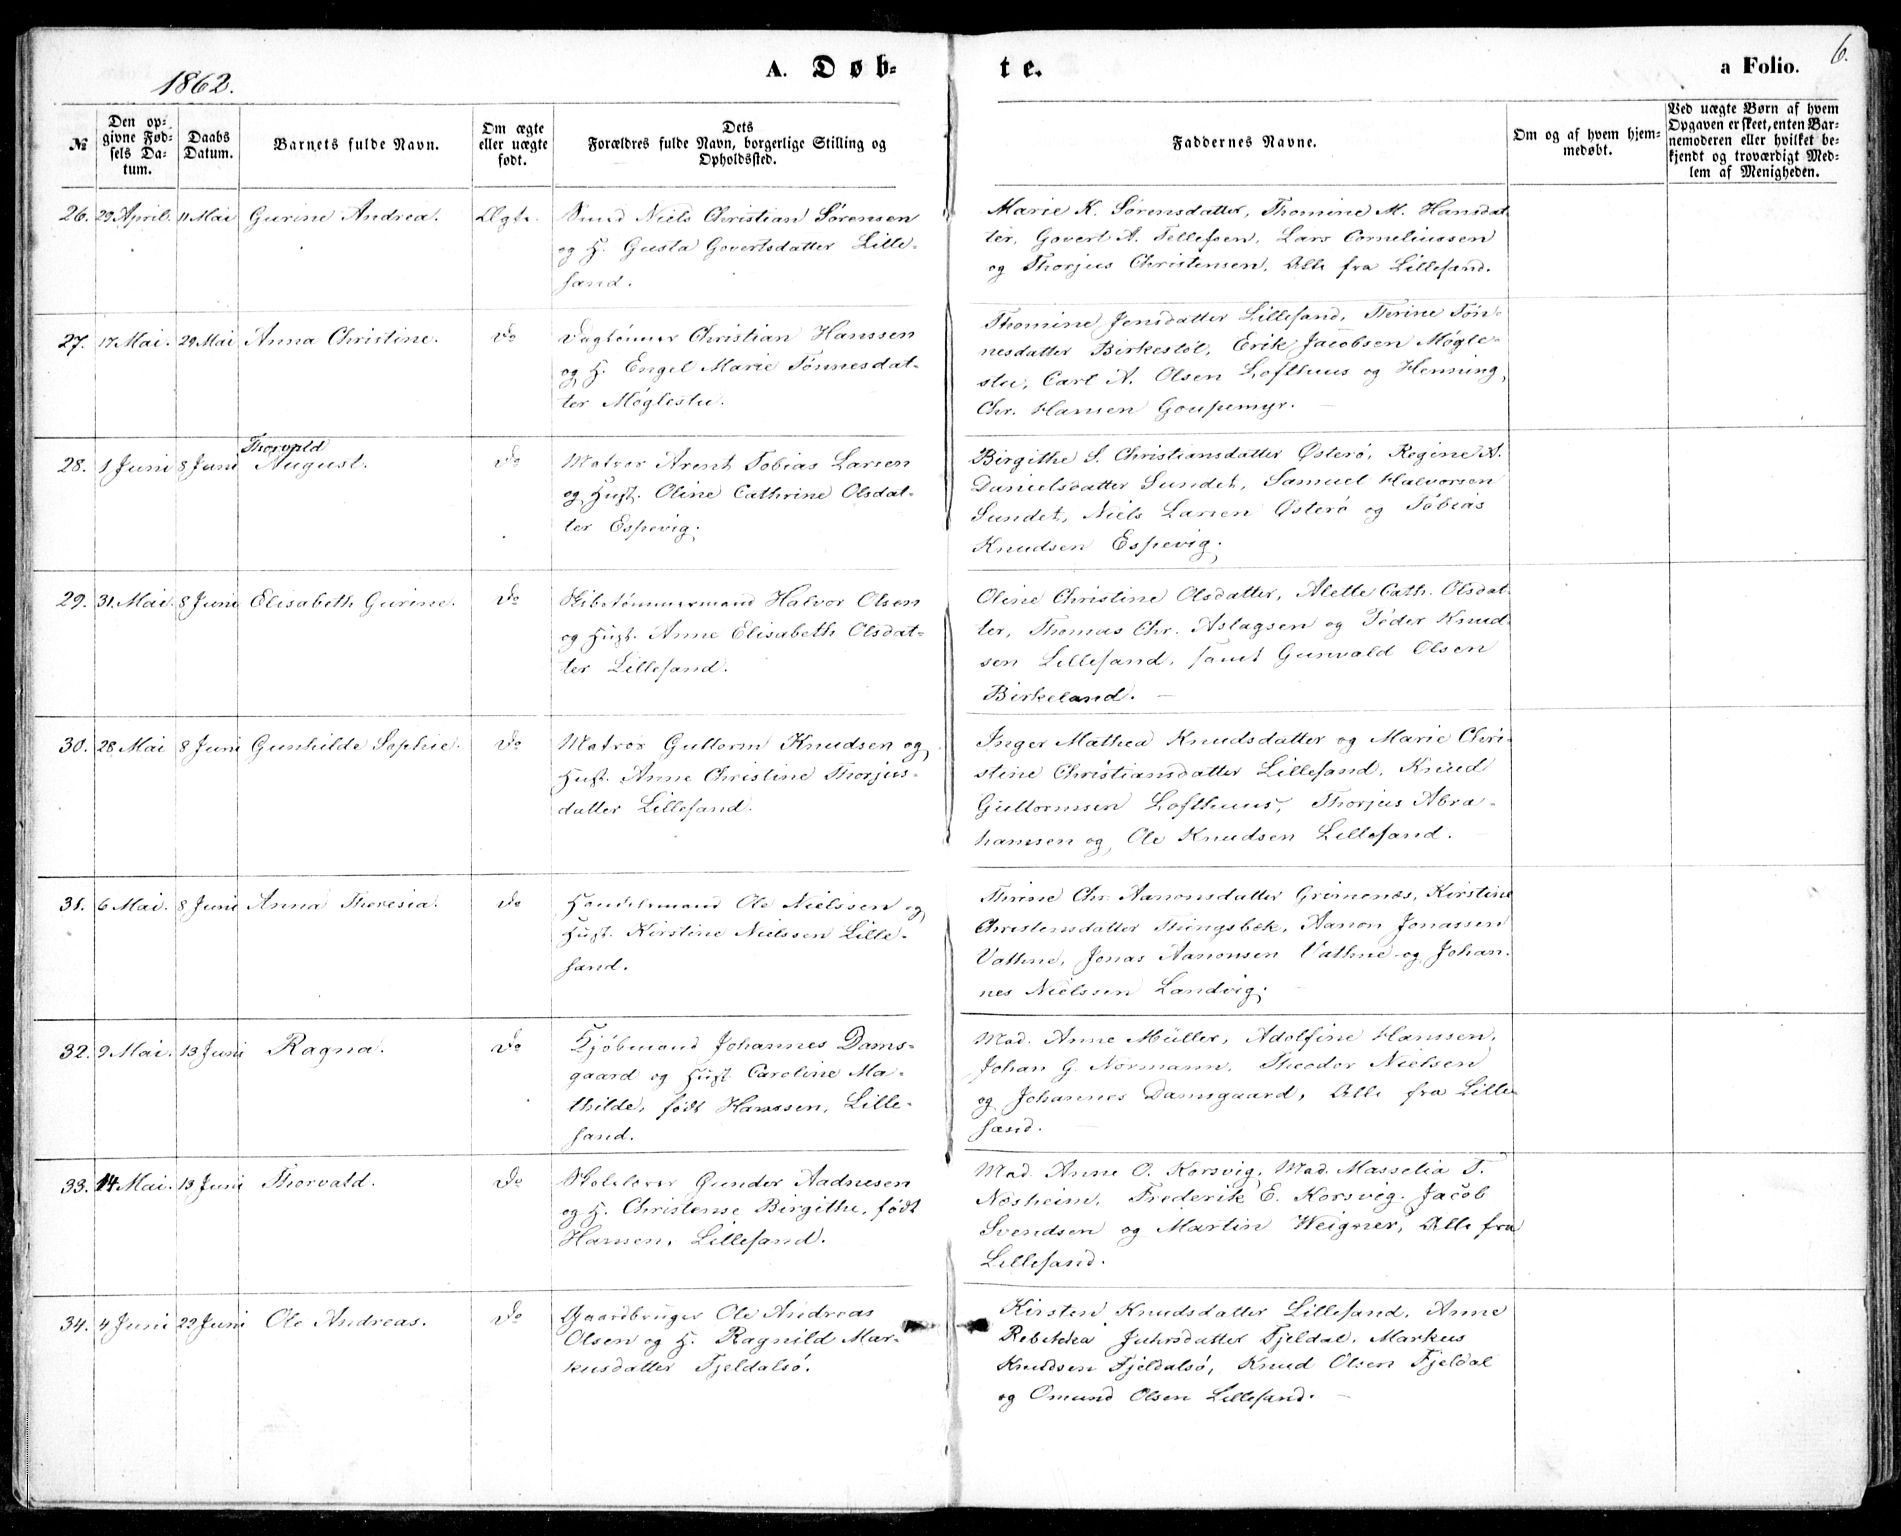 1862.
A. Døb-
te.
a Folio.
6.
№
Den op-
givne Fød-
sels Da-
tum.
Daabs
Datum.
Barnets fulde Navn.
Om ægte
eller uægte
født.
Dets
Forældres fulde Navn, borgerlige Stilling og
Opholdssted.
Faddernes Navne.
Om og af hvem hjem-
medøbt.
Ved uægte Børn af hvem
Opgaven er skeet, enten Bar-
nemoderen eller hvilket be-
kjendt og troværdigt Med-
lem af Menigheden.
26. 29 April. 11 Mai Gurine Andrea. Ægte. Smed Niels Christian Sørensen
og H. Gusta Govertsdatter Lille-
sand.
Marie K. Sørensdatter, Thomine M. Hansdat-
ter, Govert A. Tellefsen, Lars Corneliussen
og Thorjus Christensen, Alle fra Lillesand.
27. 17 Mai. 29 Mai Anna Christine. Do Daglønner Christian Hanssen
og H. Engel Marie Tønnesdat-
ter Møglestu.
Thomine Jensdatter Lillesand, Therine Tøn-
nesdatter Birkestøl, Erik Jacobsen Møgle-
stu, Carl A. Olsen Lofthuus og Henning
Chr. Hansen Goupemyr.
Thorvald
28. 1 Juni 8 Juni August. Do Matros Arent Tobias Larsen
og Hust. Oline Cathrine Olsdat-
ter Espevig.
Birgithe S. Christiansdatter Østerø, Regine A.
Danielsdatter Sundet, Samuel Halvorsen
Sundet, Niels Larsen Østerø og Tobias
Knudsen Espevig.
29. 31. Mai 8 Juni Elisabeth Gurine. Do Skibstømmermand Halvor Olsen
og Hust. Anne Elisabeth Olsdat-
ter Lillesand.
Oline Christine Olsdatter, Alette Cath. Olsdat-
ter, Thomas Chr. Aslagsen og Peder Knud-
sen Lillesand, samt Gunvald Olsen
Birkeland.
30. 28 Mai 8 Juni Gunhilde Sophie. Do Matros Guttorm Knudsen og
Hust. Anne Christine Thorjus-
datter Lillesand.
Inger Mathea Knudsdatter og Marie Chri-
stine Christiansdatter Lillesand, Knud
Guttormsen Lofthuus, Thorjus Abra-
hamsen og Ole Knudsen Lillesand.
31. 6 Mai. 8 Juni Anna Theresia. Do Handelsmand Ole Nielssen og
Hust. Kirstine Nielssen Lille-
sand.
Thrine Chr. Aanonsdatter Grimenes, Kirstine
Christensdatter Thingsbek, Aanon Jonassen
Vathne, Jonas Aanonsen Vathne og Johan-
nes Nielssen Landvig.
32. 9 Mai. 13 Juni Ragna. Do Kjøbmand Johannes Dams-
gaard og Hust. Caroline Ma-
thilde, født Hanssen, Lille-
sand.
Mad. Anne Müller, Adolfine Hanssen,
Johan G. Normann, Theodor Nielsen
og Johannes Damsgaard, Alle fra Lille-
sand.
33. 14 Mai. 13 Juni Thorvald. Do Skolelærer Gunder Aadnesen
og H. Christense Birgithe, født
Hansen, Lillesand.
Mad. Anne O. Korsvig, Mad. Masselia T.
Næsheim, Frederik E. Korsvig. Jacob
Svendsen og Martin Weigner, Alle fra
Lillesand.
34. 4 Juni 22 Juni Ole Andreas. Do Gaardbruger Ole Andreas
Olsen og H. Ragnild Mar-
kusdatter Fjeldalsø.
Kirsten Knudsdatter Lillesand, Anne
Rebekka Juhrsdatter Fjeldal, Markus
Knudsen Fjeldalsø, Knud Olsen Fjeldal
og Omund Olsen Lillesand.